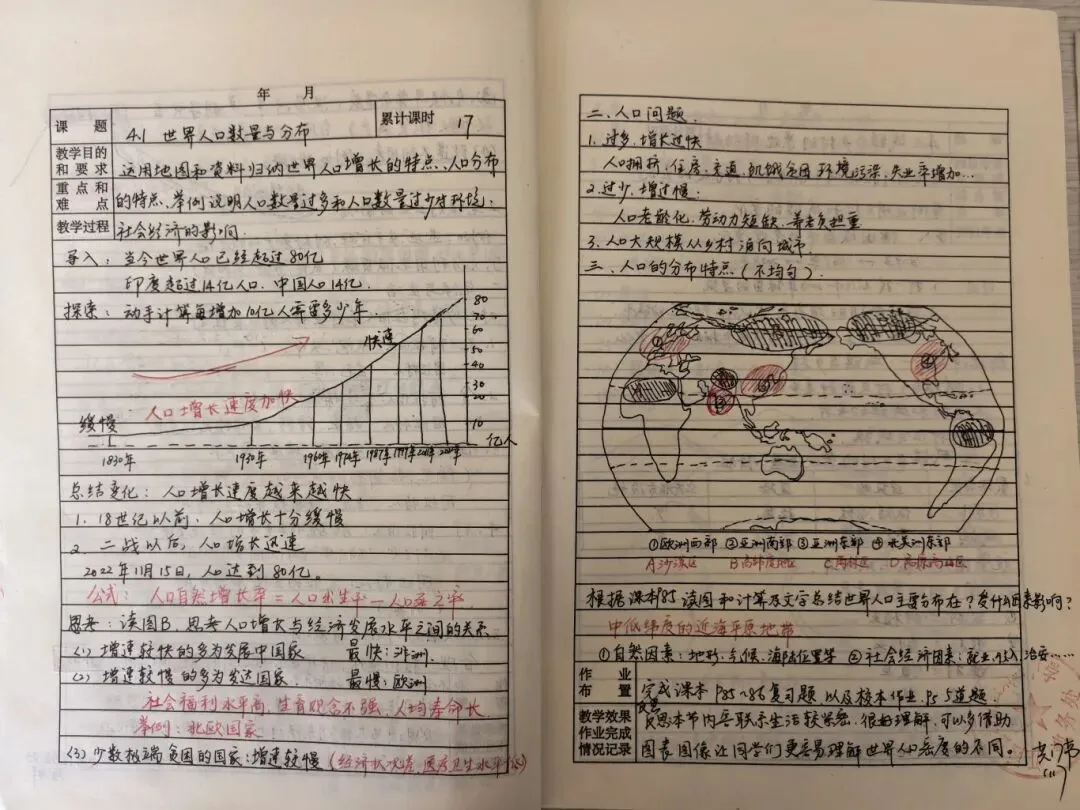 年 月
课 题 4.1 世界人口数量与分布 累计课时 17
教学目的和要求 运用地图和资料归纳世界人口增长的特点、人口分布
重点和难点 的特点、举例说明人口数量过多和人口数量过少对环境、
教学过程 社会经济的影响.
导入: 当今世界人口已经超过80亿
印度超过14亿人口. 中国人口14亿.
探索: 动手计算每增加10亿人需要多少年.
快速
80
70
60
50
40
30
20
10
人口增长速度加快
缓慢
亿人
1830年 1930年 1960年 1974年 1987年 1999年
总结变化: 人口增长速度越来越快.
1. 18世纪以前, 人口增长十分缓慢
2. 二战以后, 人口增长迅速
2022年11月15日, 人口达到80亿。
公式: 人口自然增长率 = 人口出生率 - 人口死亡率
思考: 读图B, 思考人口增长与经济发展水平之间的关系
(1) 增速较快的多为发展中国家 最快: 非洲.
(2) 增速较慢的多为发达国家. 最慢: 欧洲
社会福利水平高, 生育观念不强, 人均寿命长.
举例: 北欧国家
(3) 少数极端贫困的国家: 增速较慢 (经济长次落, 医疗卫生水平低)
二. 人口问题.
1. 过多. 增长过快
人口拥挤, 住房. 交通. 饥饿贫困 环境污染, 失业率增加...
2. 过少. 增过慢.
人口老龄化, 劳动力短缺. 养老负担重
3. 人口大规模从乡村涌向城市
三. 人口的分布特点 (不均匀).
①欧洲西部 ②亚洲南部 ③亚洲东部 ④北美洲东部
A 沙漠区 B 高纬度地区 C 雨林区 D 高原高山区
根据课本P85 读图和计算及文字总结世界人口主要分布在? 受什么因素影响?
中低纬度的近海平原地带
①自然因素: 地形. 气候. 海陆位置等 ②社会经济因素: 就业. 收入. 治安......
作业布置 完成课本P85~86复习题 以及校本作业. P5 5道题.
教学效果作业完成情况记录 反思本节内容联系生活较紧密. 很好理解, 可以多借助
图表图像让同学们更容易理解世界人口密度的不同。